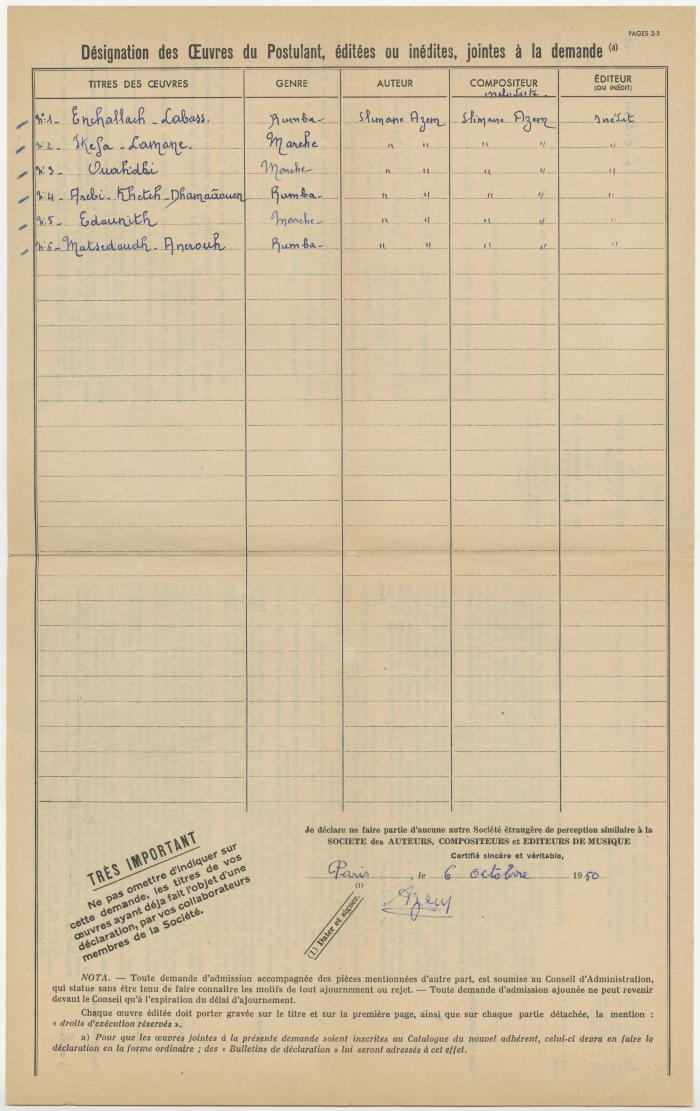 PAGES 2-3
Désignation des Œuvres du Postulant, éditées ou inédites, jointes à la demande (a)
TITRES DES ŒUVRES GENRE AUTEUR COMPOSITEUR ÉDITEUR
mélodiste. (OU INÉDIT)
N°1- Enchallach - Labass. Rumba- Slimane Azem Slimane Azem inédit
N°2- Kefa - Lamane. Marche " " " " "
N°3- Ouahdbi Marche- " " " " "
N°4- Arebi - Kheteh - Dhamaäouen Rumba- " " " " "
N°5- Edounith Marche- " " " " "
N°6- Matsedaudh - Anerouh Rumba- " " " " "
Je déclare ne faire partie d'aucune autre Société étrangère de perception similaire à la
SOCIETE des AUTEURS, COMPOSITEURS et EDITEURS DE MUSIQUE
Certifié sincère et véritable,
Paris, le 6 octobre 1950
(1)
Azem
(1) Dater et signer.
TRÈS IMPORTANT
Ne pas omettre d'indiquer sur
cette demande, les titres de vos
œuvres ayant déja fait l'objet d'une
déclaration, par vos collaborateurs
membres de la Société.
NOTA. — Toute demande d'admission accompagnée des pièces mentionnées d'autre part, est soumise au Conseil d'Administration,
qui statue sans être tenu de faire connaître les motifs de tout ajournement ou rejet. — Toute demande d'admission ajounée ne peut revenir
devant le Conseil qu'à l'expiration du délai d'ajournement.
Chaque œuvre éditée doit porter gravée sur le titre et sur la première page, ainsi que sur chaque partie détachée, la mention :
« droits d'exécution réservés ».
a) Pour que les œuvres jointes à la présente demande soient inscrites au Catalogue du nouvel adhérent, celui-ci devra en faire la
déclaration en la forme ordinaire ; des « Bulletins de déclaration » lui seront adressés à cet effet.